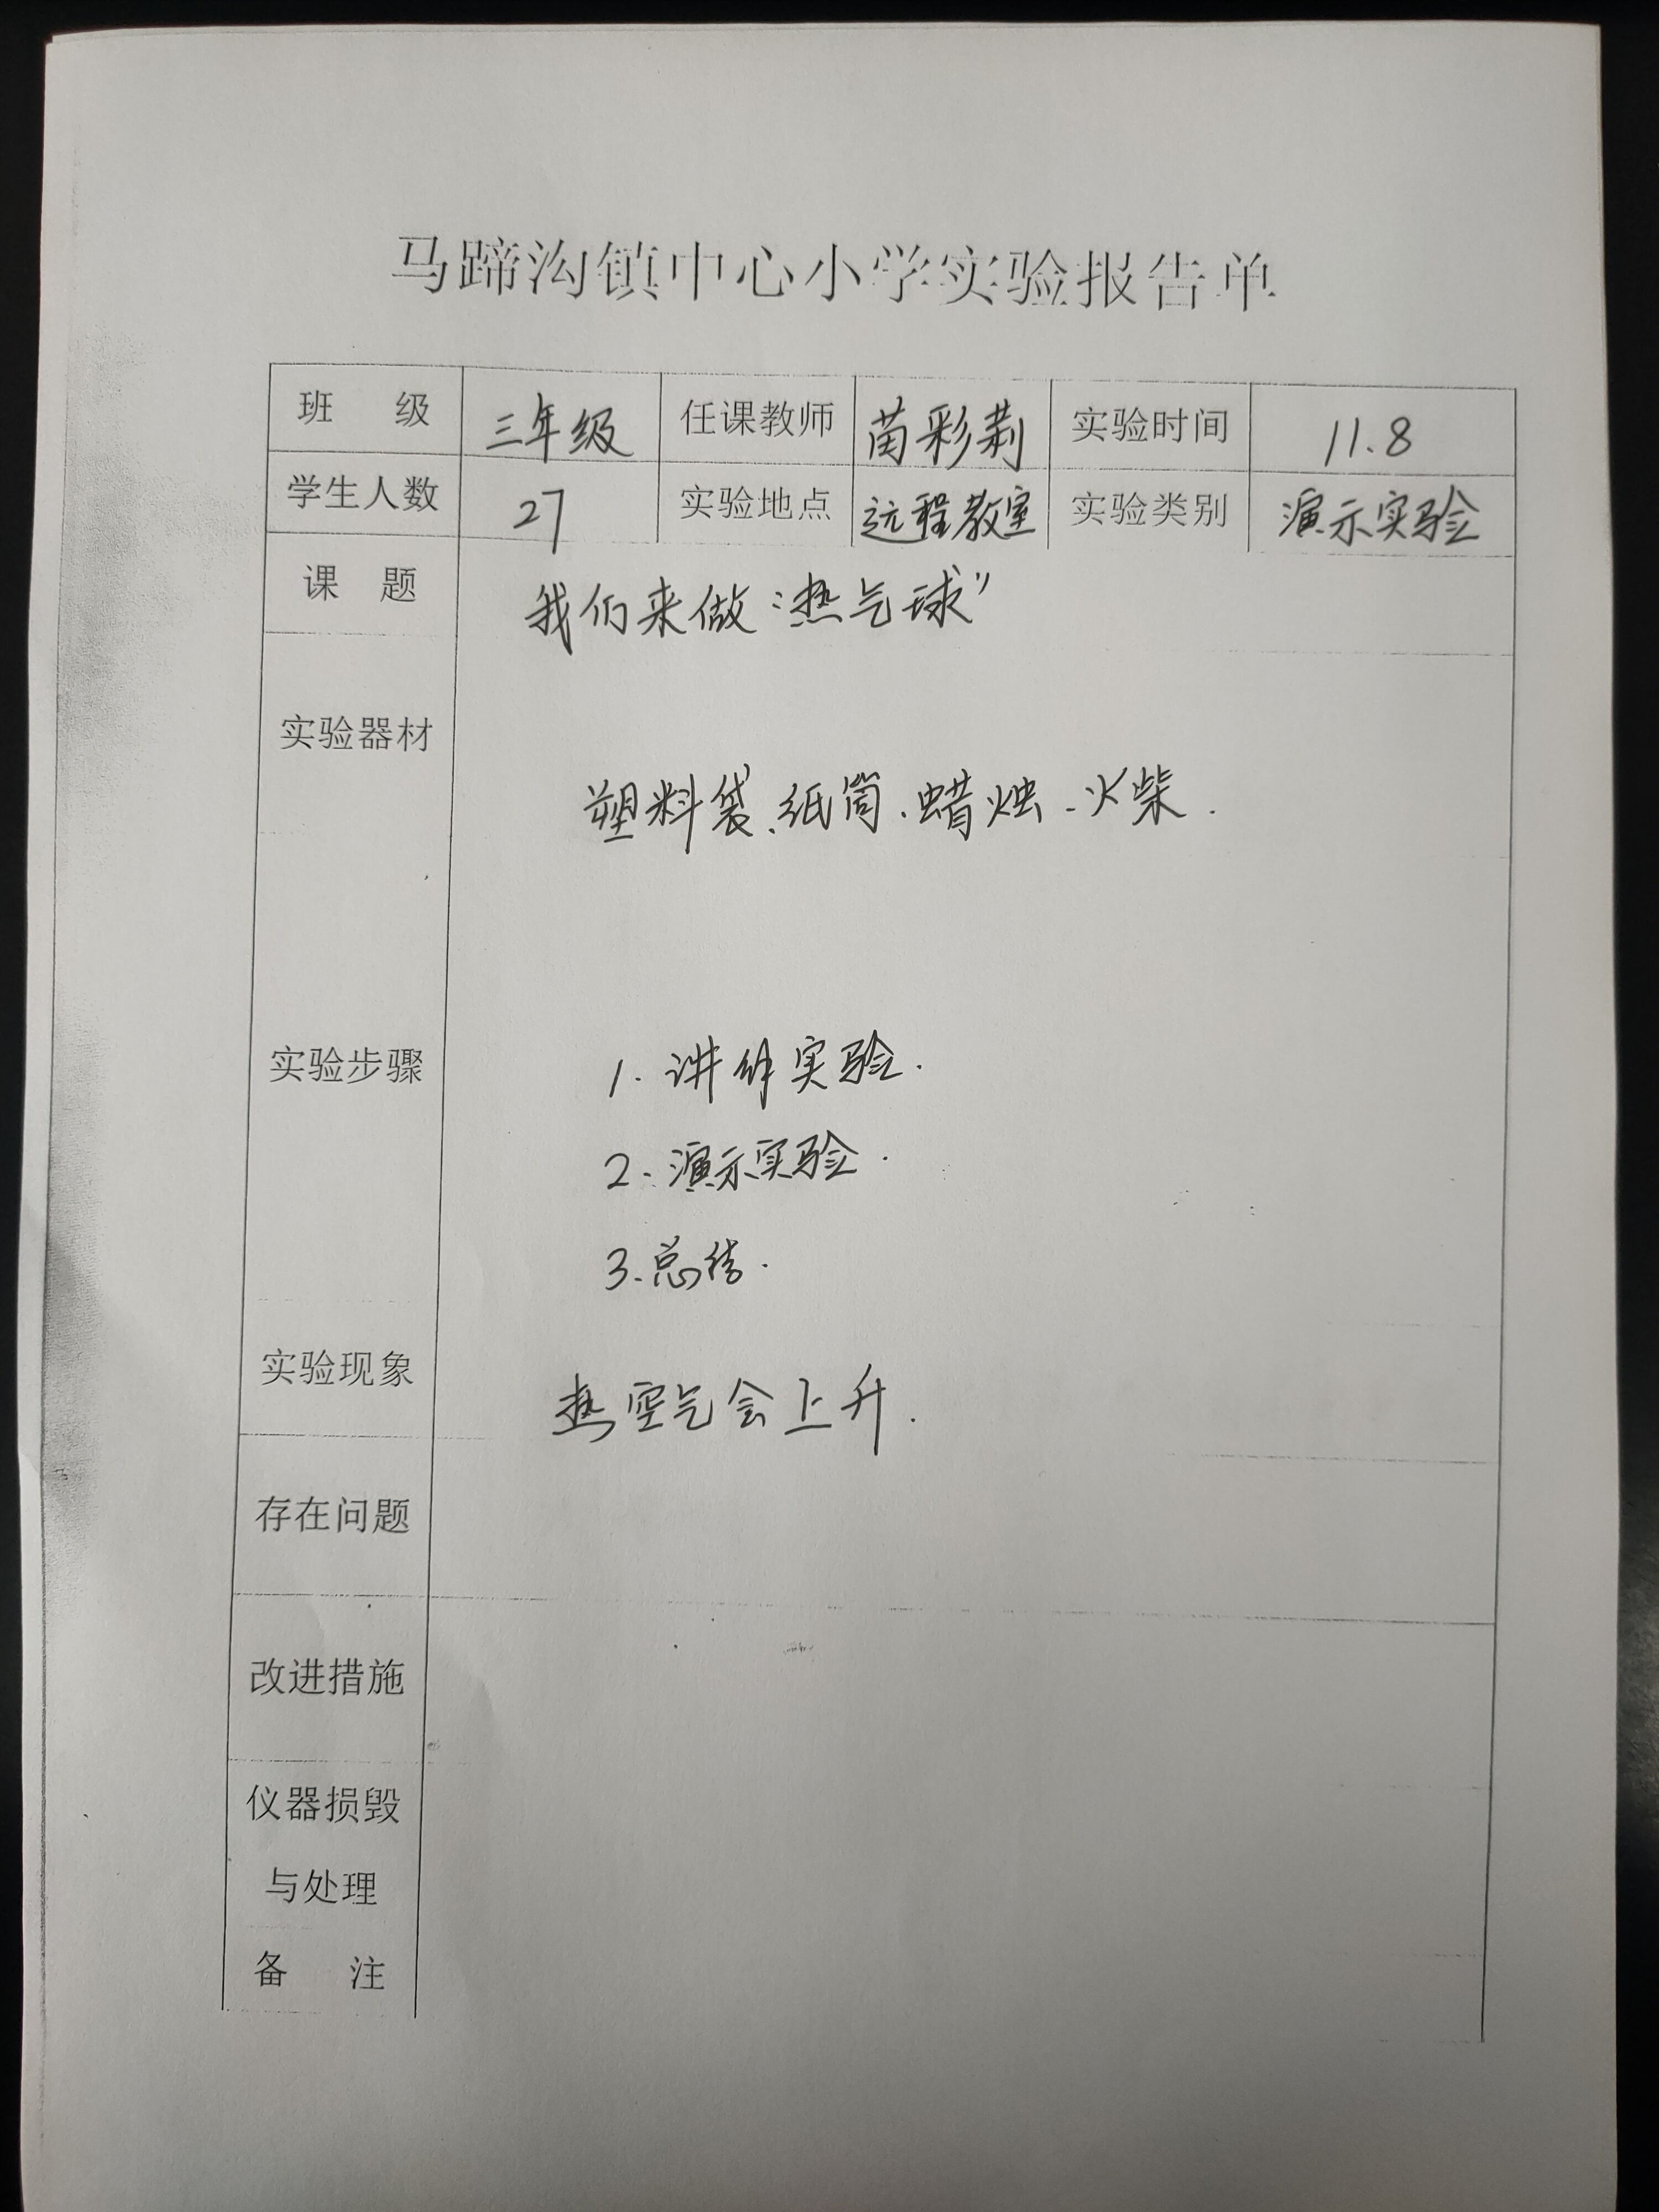 马蹄沟镇中心小学实验报告单
班 级 三年级 任课教师 苗彩莉 实验时间 11.8
学生人数 27 实验地点 远程教室 实验类别 演示实验
课 题 我们来做“热气球”
实验器材 塑料袋、纸筒、蜡烛、火柴.
实验步骤 1. 讲解实验.
2. 演示实验.
3. 总结.
实验现象 热空气会上升.
存在问题
改进措施
仪器损毁
与处理
备 注